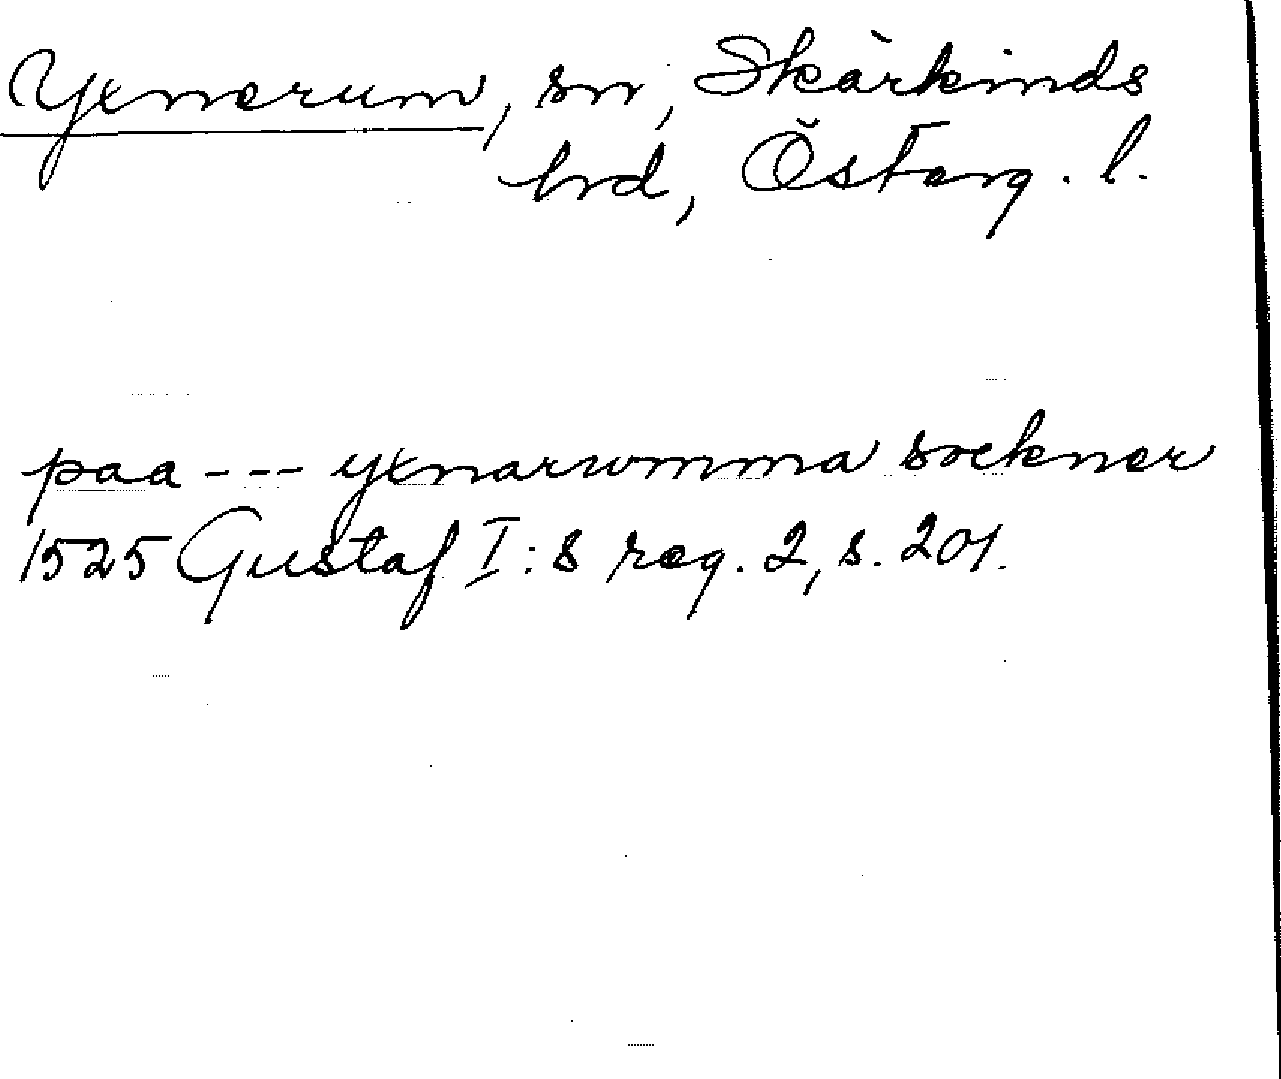 Yxnerum, sn, Skärkinds
hrd, Österg. l.
paa --- yxnarwmma sockner
1525 Gustaf I:s reg. 2, s. 201.